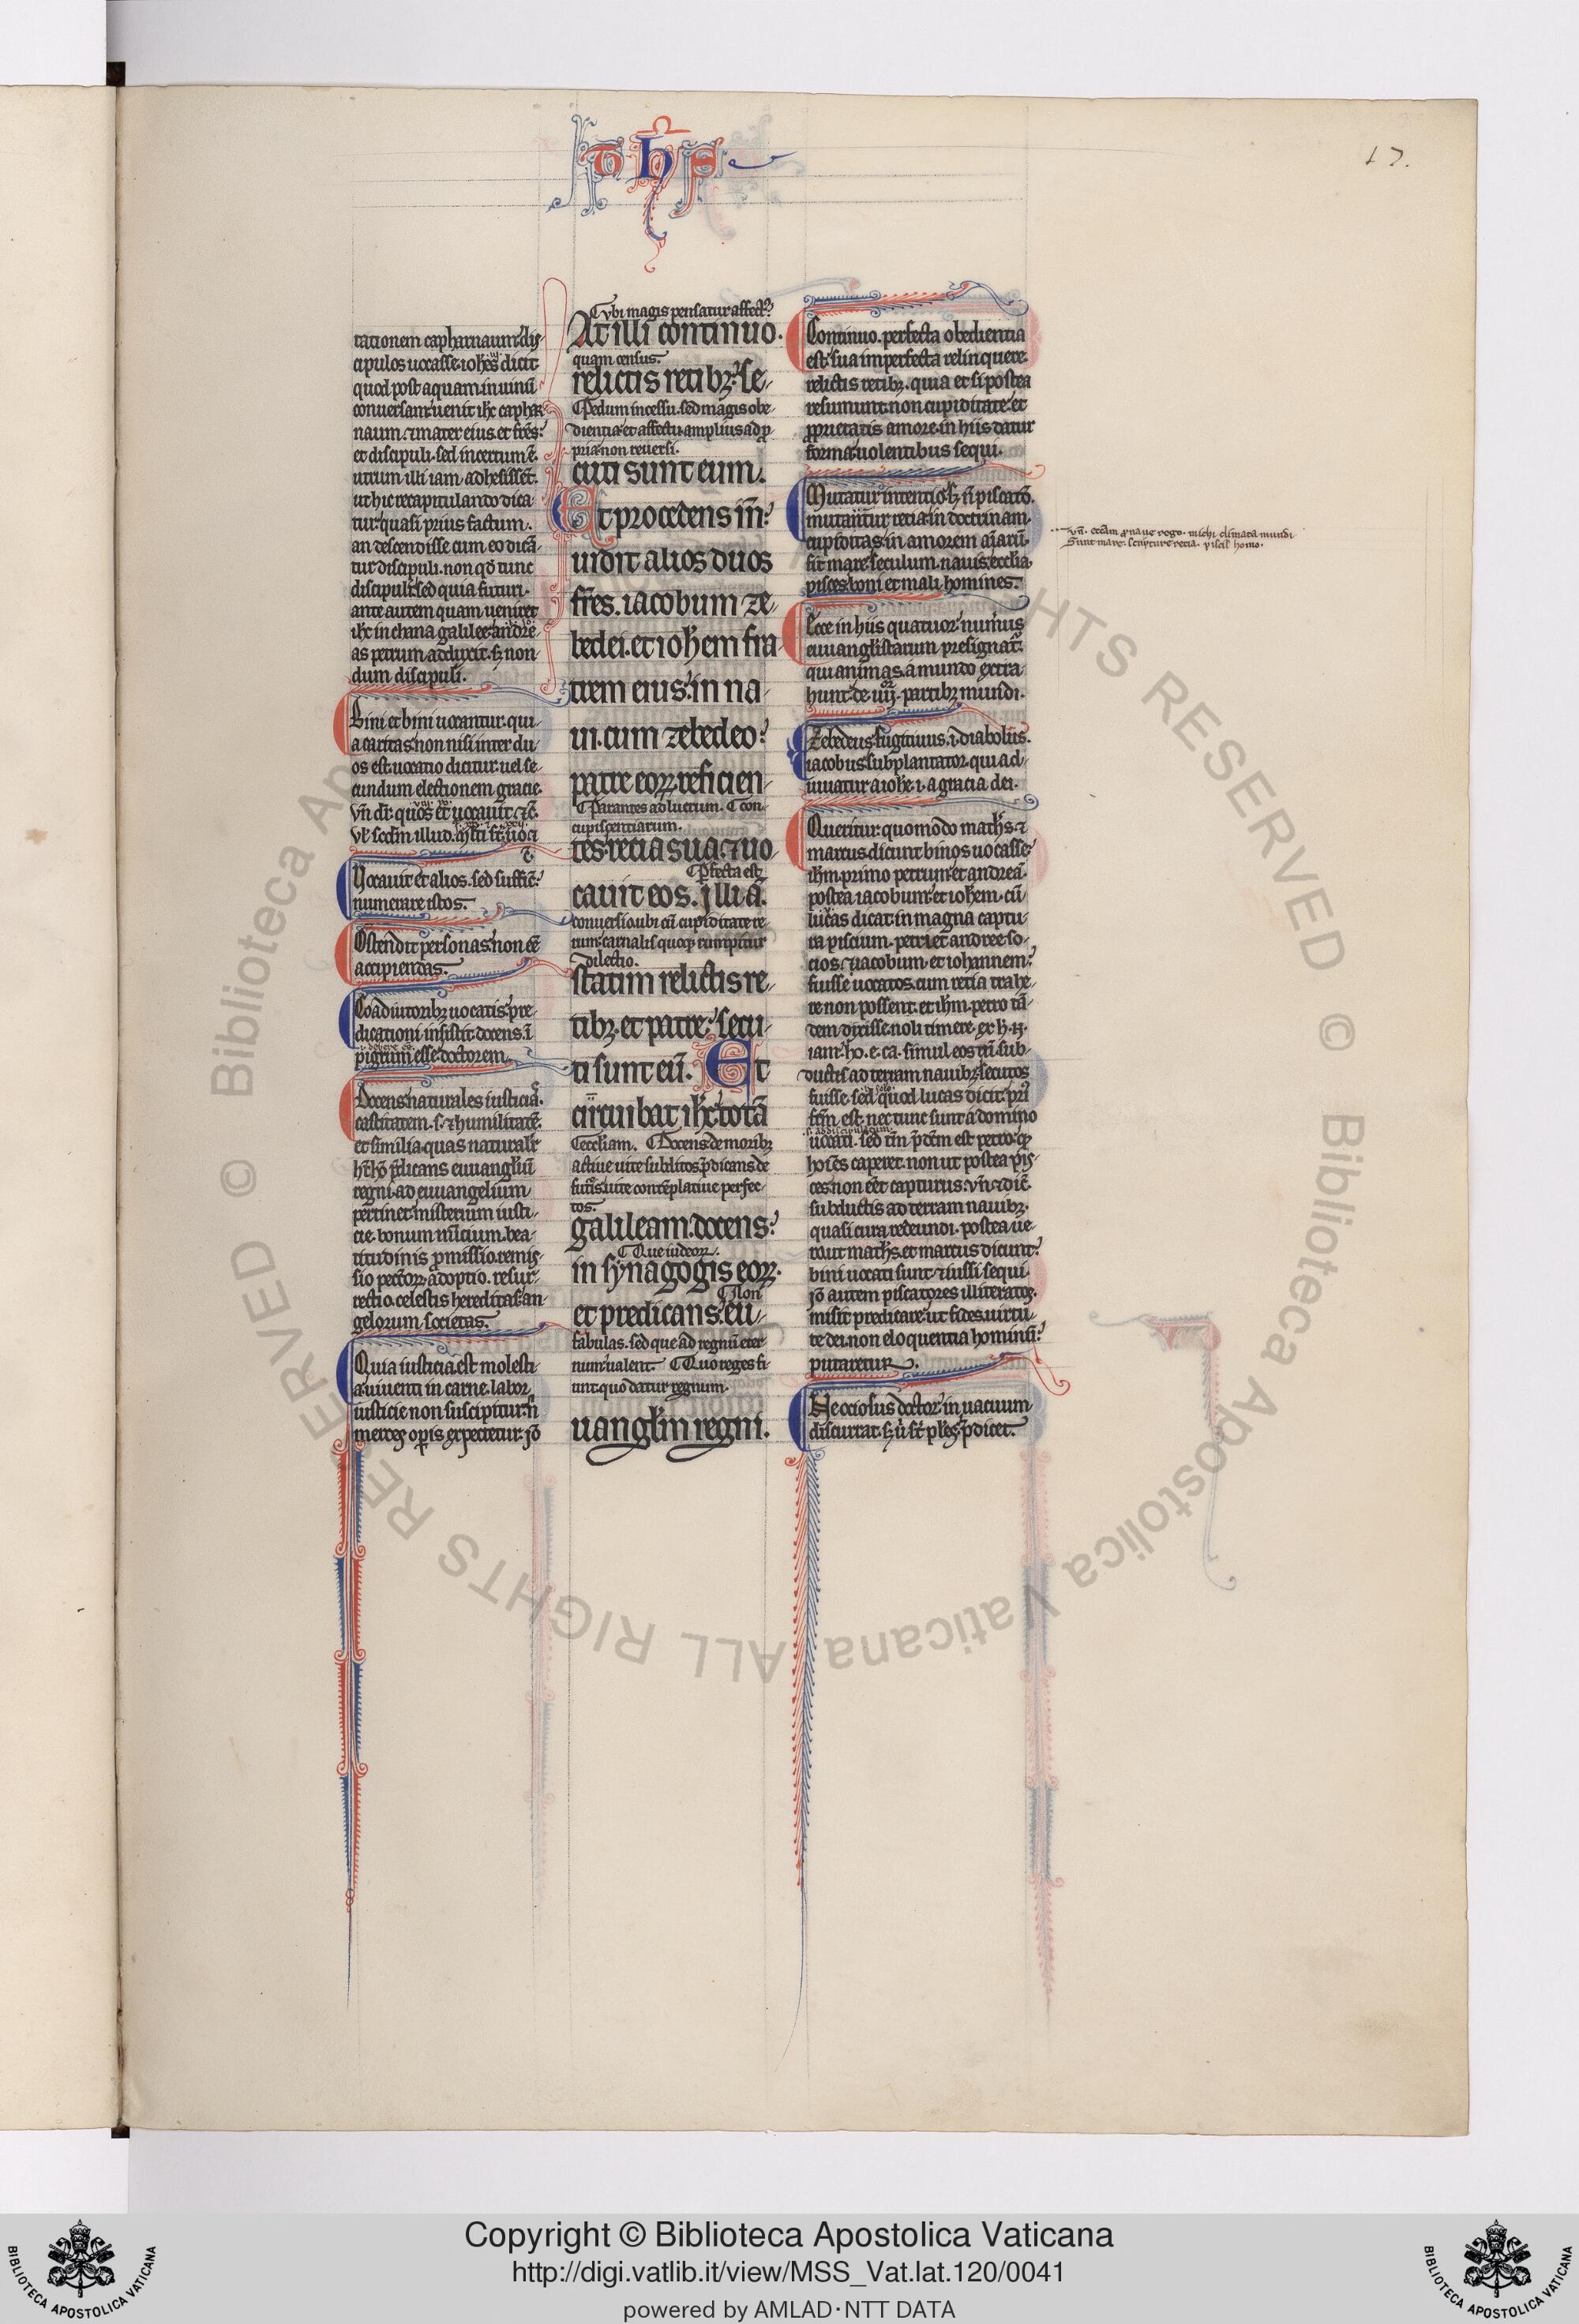 ths
17.
tationem capharnaum dis
cipulos uocasse. iohēs dicit
quod post aquam in uinū
conuersam uenit ihc caphar
naum. ⁊ mater eius et frēs.
et discipuli. sed incertum ē.
utrum illi iam adhesissēt.
ut hic recapitulando dica
tur quasi prius factum.
an descendisse cum eo dicā
tur discipuli. non qđ tunc
discipuli. sed quia futuri.
ante autem quam ueniret
ihc in chana galilee. andre
as petrum adduxit. sꝫ non
dum discipuli.
Bini et bini uocantur. qui
a caritas non nisi inter du
os est. uocatio dicitur uel se
cundum electionem gracie.
Vocauit et alios. sed suffic̄
numerare istos.
Ostendit personas non eē
accipiendas.
Coadiutoribꝫ uocatis. pre
dicationi insistit. docens. ī
pigrum esse doctorem.
Docens naturales iusticias.
castitatem. s. ⁊ humilitatē.
et similia. quas naturalr̄
regni. ad euuangelium
pertinet misterium iusti
cie. bonum nuncium. bea
titudinis promissio. remis
sio peccatorꝝ. adoptio. resur
rectio. celestis hereditas. an
gelorum societas.
Quia iusticia est molesti
a uiuenti in carne. labor
iusticie non suscipitur. n̄
merces operis expectetur. iō
Vbi magis pensatur affectꝰ
At illi continuo.
quam census.
relictis retibꝫ. se
Pedum incessu. sed magis obe
dientia. et affectu. amplius ad pro
pria non reuersi.
cuti sunt eum.
Et procedens in̄.
uidit alios duos
frēs. iacobum ze
bedei. et ioħem fra
trem eius. in na
ui. cum zebedeo
patre eorꝝ. reficien
Parantes ad luctum. con
cupiscentiarum.
tes retia sua. ⁊ uo
Perfecta est
cauit eos. illi ā.
conuersio. ubi cū cupiditate re
rum. carnalis quoqꝫ rumpitur
dilectio.
statim relictis re
tibꝫ et patre. secu
ti sunt eū. Et
circuibat ihc totā
Ecclesiam. Docens de moribꝫ
actiue uite subditos. p̄dicans de
futuris. uite contēplatiue perfec
tos.
galileam. docens.
Que iudeorꝝ.
in synagogis eorꝝ.
Non
et predicans. eu
fabulas. sed que ad regnū eter
num ualent. Quo reges fi
unt. quo datur regnum.
uangl̄m regni.
Continuo. perfecta obedientia
est. sua imperfecta relinquere.
relictis retibꝫ. quia et si postea
resumunt. non cupiditate. et
proprietatis amore. in hiis datur
forma uolentibus sequi.
Mutatur intentio. sꝫ n̄ piscatio.
mutantur retia in doctrinam.
cupiditas in amorem aīarū.
fit mare. seculum. nauis. eccl̄ia.
pisces. boni et mali homines.
Ecce in hiis quatuor. numꝰus
euuangelistarum presignatr̄.
qui animas a mundo extra
hunt. de iiii. partibꝫ mundi.
Zebedeus fugitiuus. i. diabolus.
iacobus subplantator. qui ad
iuuatur a iohe. i. a gracia dei.
Queritur quomodo math̄s. ⁊
marcus dicunt binos uocasse
ihm. primo petrum et andreā.
postea iacobum et ioħem. cū
lucas dicat. in magna captu
ra piscium. petri et andree so
cios. iacobum. et iohannem.
fuisse uocatos. cum retia trahe
re non possent. et ihm. petro tā
simul eos cum sub
ductis ad terram nauibꝫ secutos
fuisse. sed quod lucas dicit. pri
est. nec tunc sunt a domino
uocati. sed tm̄ p̄dēm est petro. qꝫ
hoīes caperet. non ut postea pis
ces non eēt capturus. vn̄ ⁊ dic̄
subductis ad terram nauibꝫ.
quasi cura redeundi. postea ue
ro ut math̄s. et marcus dicunt.
bini uocati sunt. ⁊ iussi sequi.
iō autem piscatores illiteratos
misit predicare. ut fides. uirtu
te dei. non eloquentia hominū.
putaretur.
Ne ociosus doctor. in uacuum
discurrat.
Sunt mare. scripture retia. piscis homo.
© Biblioteca Apostolica Vaticana ALL RIGHTS RESERVED
Copyright © Biblioteca Apostolica Vaticana
http://digi.vatlib.it/view/MSS_Vat.lat.120/0041
powered by AMLAD·NTT DATA
BIBLIOTECA APOSTOLICA VATICANA
BIBLIOTECA APOSTOLICA VATICANA